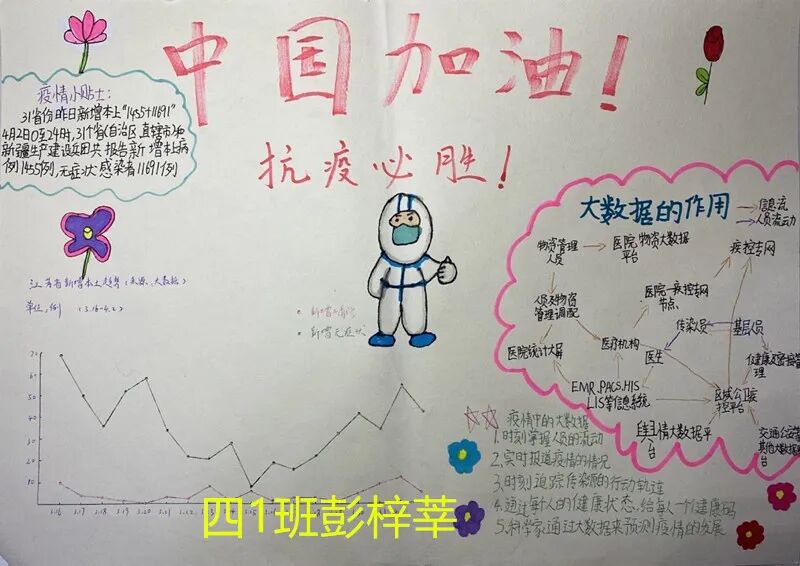 中国加油！
抗疫必胜！
疫情小贴士：
31省份昨日新增本土"1455+11691"
4月2日0至24时，31个省(自治区、直辖市)和
新疆生产建设兵团共报告新增本土病
例1455例，无症状感染者11691例
单位：例 (3.16-4.2)
新增无症状
大数据的作用
信息流
人员流动
物资管理
人员
医院物资大数据
平台
疾控专网
人员及物资
管理调配
医院-疾控专网
节点
传染人员
基层人员
医院统计大屏
医疗机构
医生
EMR.PACS.HIS
LIS等信息系统
疫情中的大数据
1.时刻掌握人员的流动
2.实时报道疫情的情况
3.时刻追踪传染源的行动轨迹
4.通过每个人的健康状态，给每人一个健康码
5.科学家通过大数据来预测疫情的发展
3.16
3.18
3.20
四1班彭梓莘